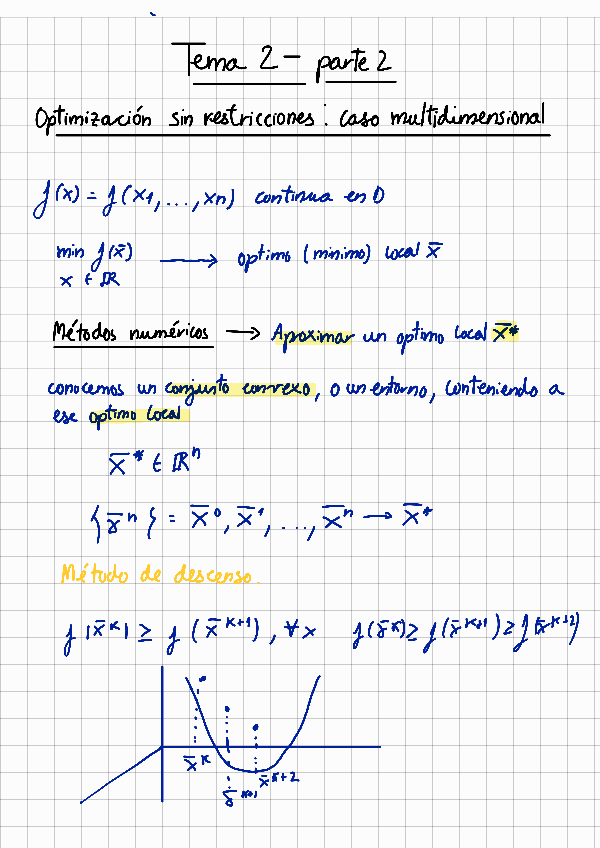 Tema 2 - parte 2
Optimización sin restricciones: caso multidimensional
f(x) = f(x1, ..., xn) continua en D
min f(x̄) → optimo (mínimo) local x̄
x ∈ ℝ
Métodos numéricos → Aproximar un optimo local x̄*
conocemos un conjunto convexo, o un entorno, conteniendo a
ese optimo local
x̄* ∈ ℝⁿ
{x̄ⁿ} = x̄⁰, x̄¹, ..., x̄ⁿ → x̄*
Método de descenso.
f(x̄ᴷ) ≥ f(x̄ᴷ⁺¹), ∀x f(x̄ᴷ) ≥ f(x̄ᴷ⁺¹) ≥ f(x̄ᴷ⁺²)
x̄ᴷ x̄ᴷ⁺¹ x̄ᴷ⁺²